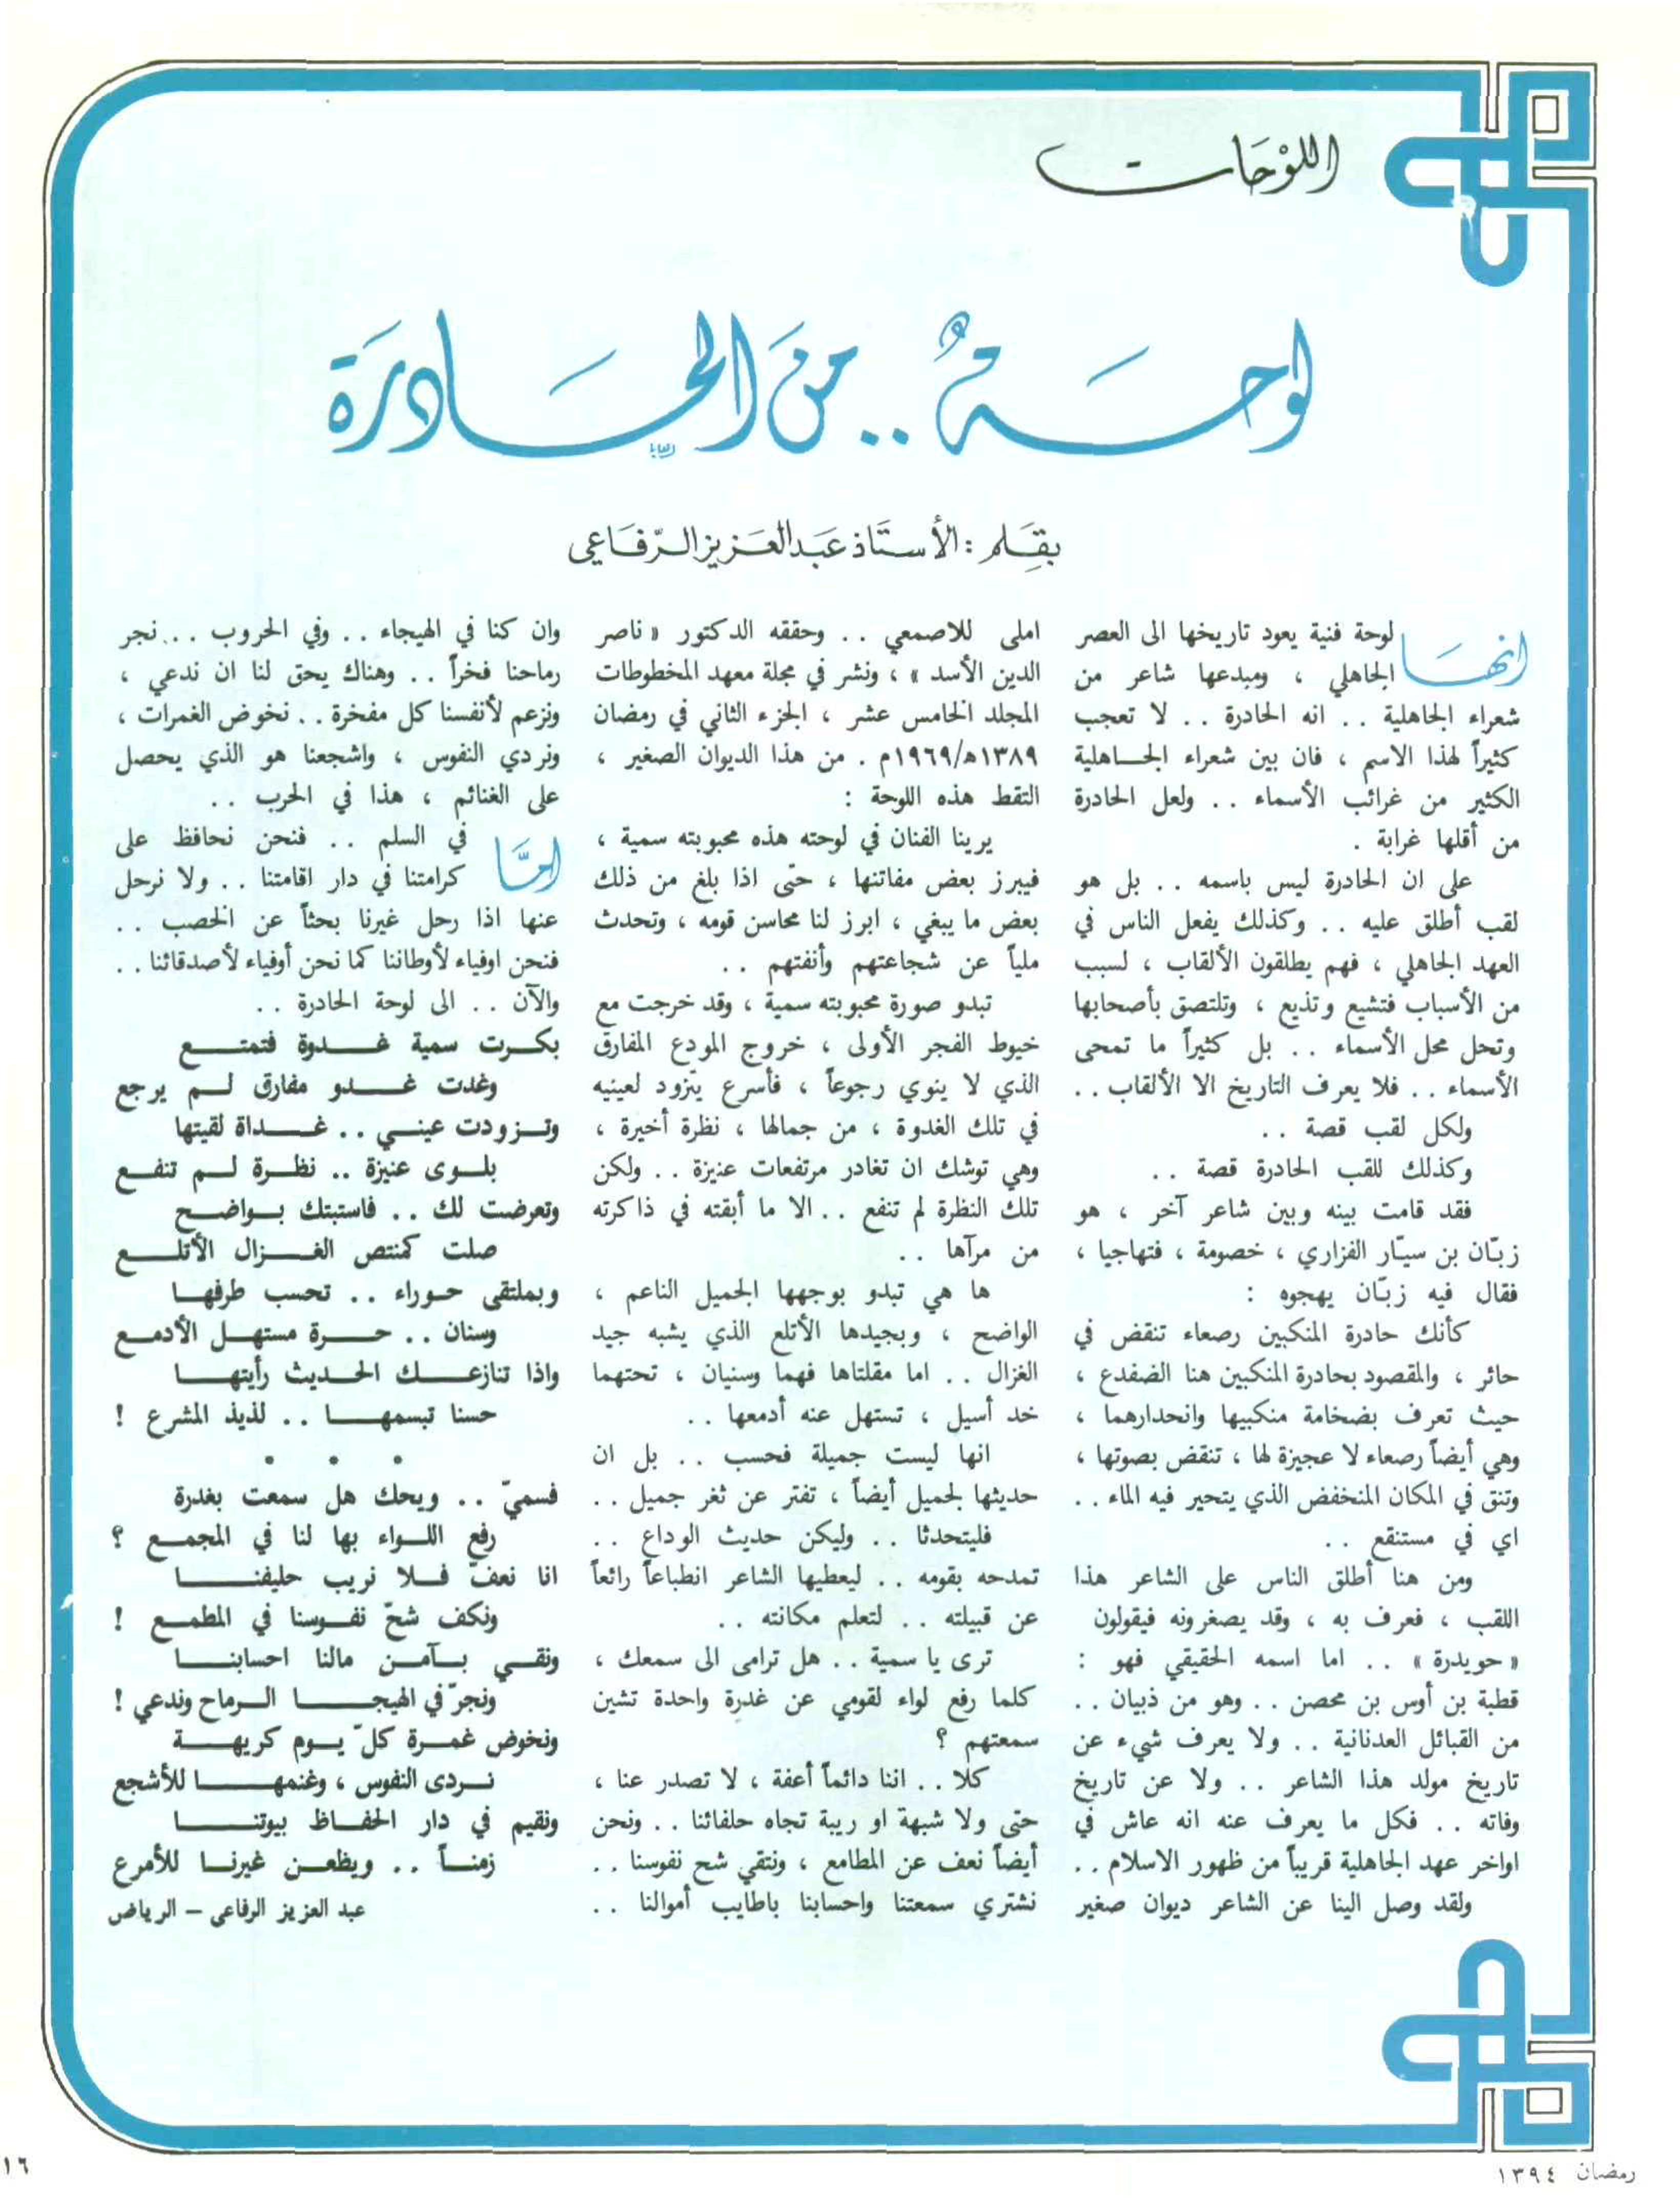 اللوحات
لوحة .. من الحادرة
بقلم : الأستاذ عبد العزيز الرفاعي
انها لوحة فنية يعود تاريخها الى العصر
الجاهلي ، ومبدعها شاعر من
شعراء الجاهلية .. انه الحادرة .. لا تعجب
كثيراً لهذا الاسم ، فان بين شعراء الجاهلية
الكثير من غرائب الأسماء .. ولعل الحادرة
من أقلها غرابة .
على ان الحادرة ليس باسمه .. بل هو
لقب أطلق عليه .. وكذلك يفعل الناس في
العهد الجاهلي ، فهم يطلقون الألقاب ، لسبب
من الأسباب فتشيع وتذيع ، وتلتصق بأصحابها
وتحل محل الأسماء .. بل كثيراً ما تمحى
الأسماء .. فلا يعرف التاريخ الا الألقاب ..
ولكل لقب قصة ..
وكذلك للقب الحادرة قصة ..
فقد قامت بينه وبين شاعر آخر ، هو
زبّان بن سيّار الفزاري ، خصومة ، فتهاجيا ،
فقال فيه زبّان يهجوه :
كأنك حادرة المنكبين رصعاء تنقض في
حائر ، والمقصود بحادرة المنكبين هنا الضفدع ،
حيث تعرف بضخامة منكبيها وانحدارهما ،
وهي أيضاً رصعاء لا عجيزة لها ، تنقض بصوتها ،
وتنق في المكان المنخفض الذي يتحير فيه الماء ..
اي في مستنقع ..
ومن هنا أطلق الناس على الشاعر هذا
اللقب ، فعرف به ، وقد يصغرونه فيقولون
« حويدرة » .. اما اسمه الحقيقي فهو :
قطبة بن أوس بن محصن .. وهو من ذبيان ..
من القبائل العدنانية .. ولا يعرف شيء عن
تاريخ مولد هذا الشاعر .. ولا عن تاريخ
وفاته .. فكل ما يعرف عنه انه عاش في
اواخر عهد الجاهلية قريباً من ظهور الاسلام ..
ولقد وصل الينا عن الشاعر ديوان صغير
املى للاصمعي .. وحققه الدكتور « ناصر
الدين الأسد » ، ونشر في مجلة معهد المخطوطات
المجلد الخامس عشر ، الجزء الثاني في رمضان
١٣٨٩ه/١٩٦٩م . من هذا الديوان الصغير ،
التقط هذه اللوحة :
يرينا الفنان في لوحته هذه محبوبته سمية ،
فيبرز بعض مفاتنها ، حتى اذا بلغ من ذلك
بعض ما يبغي ، ابرز لنا محاسن قومه ، وتحدث
ملياً عن شجاعتهم وأنفتهم ..
تبدو صورة محبوبته سمية ، وقد خرجت مع
خيوط الفجر الأولى ، خروج المودع المفارق
الذي لا ينوي رجوعاً ، فأسرع يتزود لعينيه
في تلك الغدوة ، من جمالها ، نظرة أخيرة ،
وهي توشك ان تغادر مرتفعات عنيزة .. ولكن
تلك النظرة لم تنفع .. الا ما أبقته في ذاكرته
من مرآها ..
ها هي تبدو بوجهها الجميل الناعم ،
الواضح ، وبجيدها الأتلع الذي يشبه جيد
الغزال .. اما مقلتاها فهما وسنيان ، تحتهما
خد أسيل ، تستهل عنه أدمعها ..
انها ليست جميلة فحسب .. بل ان
حديثها لجميل أيضاً ، تفتر عن ثغر جميل ..
فليتحدثا .. وليكن حديث الوداع ..
تمدحه بقومه .. ليعطيها الشاعر انطباعاً رائعاً
عن قبيلته .. لتعلم مكانته ..
ترى يا سمية .. هل ترامى الى سمعك ،
كلما رفع لواء لقومي عن غدرة واحدة تشين
سمعتهم ؟
كلا .. اننا دائماً أعفة ، لا تصدر عنا ،
حتى ولا شبهة او ريبة تجاه حلفائنا .. ونحن
أيضاً نعف عن المطامع ، ونتقي شح نفوسنا ..
نشتري سمعتنا واحسابنا باطايب أموالنا ..
وان كنا في الهيجاء .. وفي الحروب .. نجر
رماحنا فخراً .. وهناك يحق لنا ان ندعي ،
ونزعم لأنفسنا كل مفخرة .. نخوض الغمرات ،
ونردي النفوس ، واشجعنا هو الذي يحصل
على الغنائم ، هذا في الحرب ..
امّا في السلم .. فنحن نحافظ على
كرامتنا في دار اقامتنا .. ولا نرحل
عنها اذا رحل غيرنا بحثاً عن الخصب ..
فنحن اوفياء لأوطاننا كما نحن أوفياء لأصدقائنا ..
والآن .. الى لوحة الحادرة ..
بكرت سمية غدوة فتمتع
وغدت غدو مفارق لم يرجع
وتزودت عيني .. غداة لقيتها
بلوى عنيزة .. نظرة لم تنفع
وتعرضت لك .. فاستبتك بواضح
صلت كمنتص الغزال الأتلع
وبملتقى حوراء .. تحسب طرفها
وسنان .. حرة مستهل الأدمع
واذا تنازعك الحديث رأيتها
حسنا تبسمها .. لذيذ المشرع !
• • •
فسميّ .. ويحك هل سمعت بغدرة
رفع اللواء بها لنا في المجمع ؟
انا نعفّ فلا نريب حليفنا
ونكف شحّ نفوسنا في المطمع !
ونقي بآمن مالنا احسابنا
ونجرّ في الهيجا الرماح وندعي !
ونخوض غمرة كلّ يوم كريهة
نردى النفوس ، وغنمها للأشجع
ونقيم في دار الحفاظ بيوتنا
زمناً .. ويظعن غيرنا للأمرع
عبد العزيز الرفاعي – الرياض
رمضان ١٣٩٤
١٦